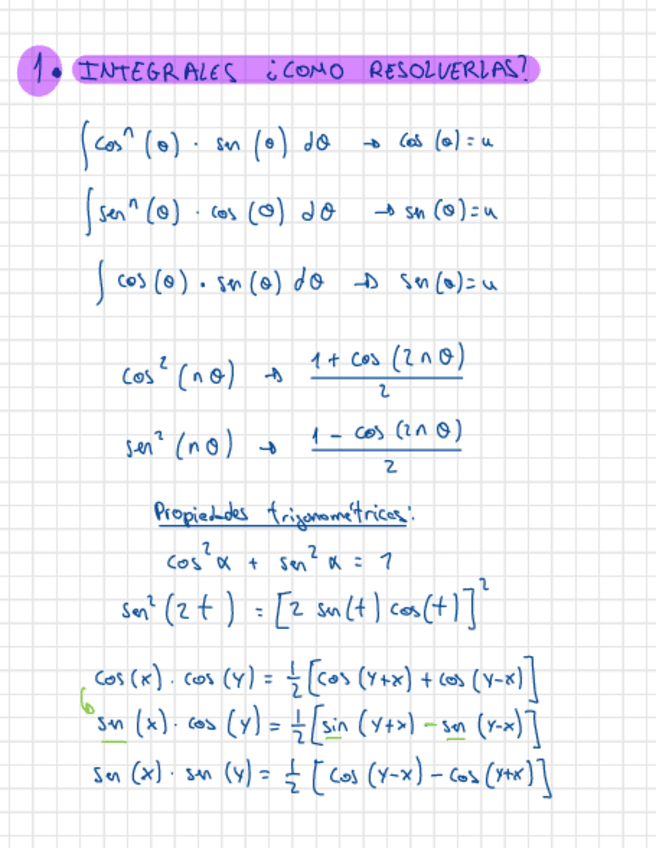 1. INTEGRALES ¿COMO RESOLVERLAS?
∫cosⁿ(θ) · sen(θ) dθ → cos(θ)=u
∫senⁿ(θ) · cos(θ) dθ → sen(θ)=u
∫cos(θ) · sen(θ) dθ → sen(θ)=u
cos²(nθ) → (1 + cos(2nθ))/2
sen²(nθ) → (1 - cos(2nθ))/2
Propiedades trigonométricas:
cos²α + sen²α = 1
sen²(2t) = [2 sen(t) cos(t)]²
cos(x) · cos(y) = 1/2 [cos(y+x) + cos(y-x)]
sen(x) · cos(y) = 1/2 [sin(y+x) - sen(y-x)]
sen(x) · sen(y) = 1/2 [cos(y-x) - cos(y+x)]